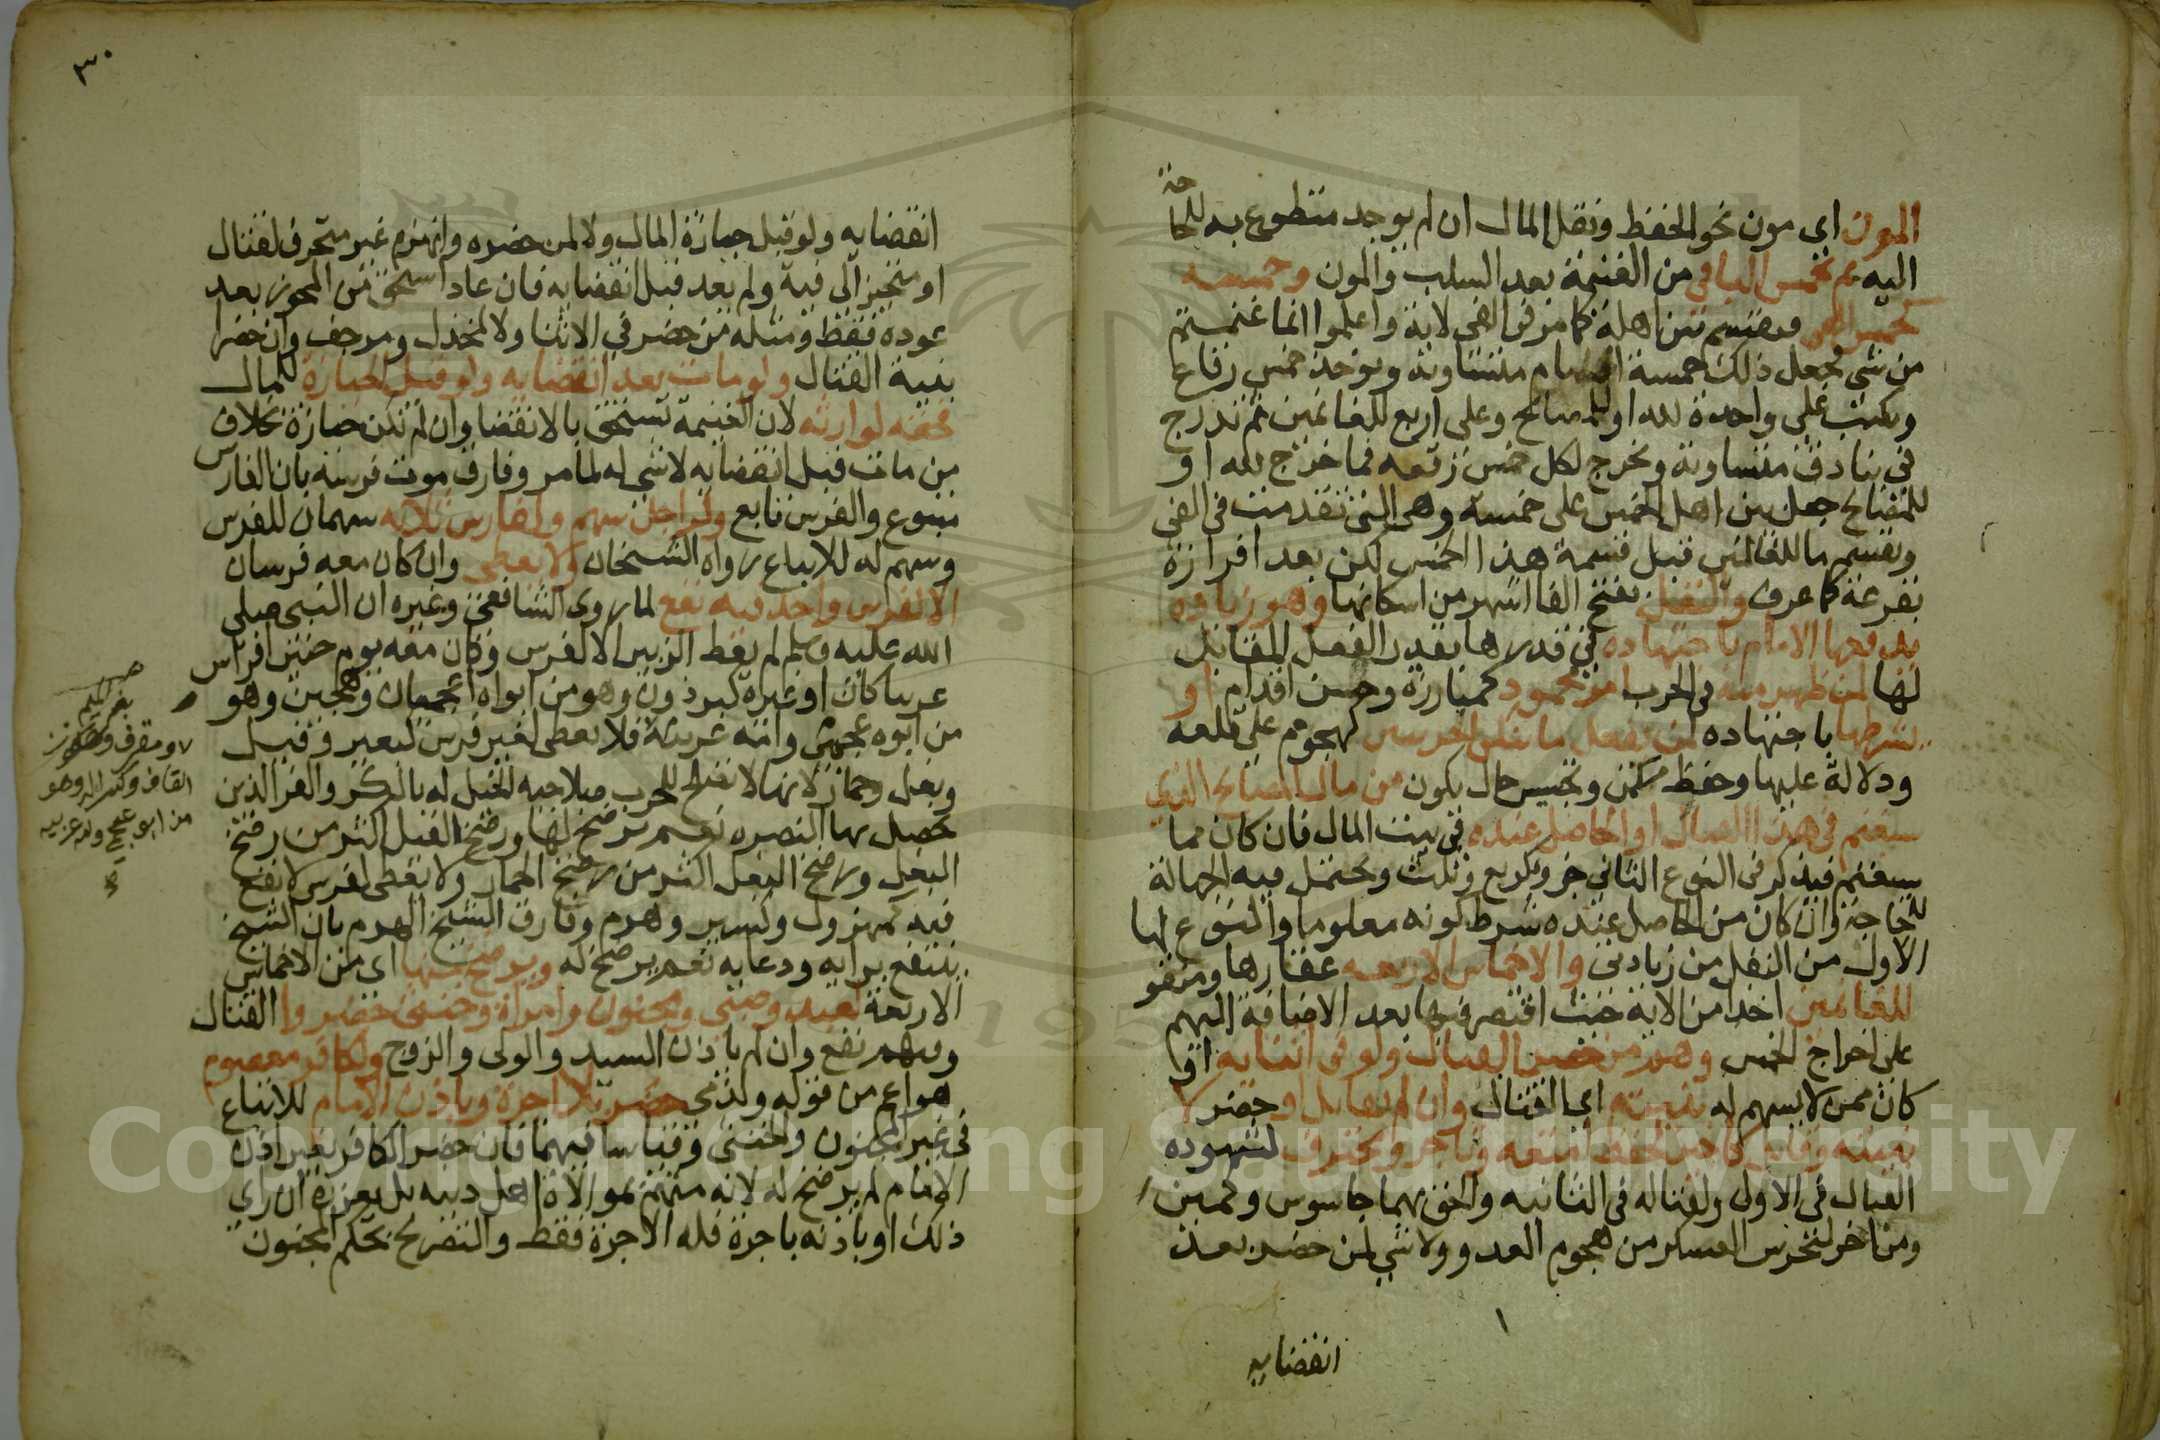 المون اي مون نحو الحفظ ونقل المال ان لم يوجد متطوع به للحاجة
اليه ثم تخمس الباقي من الغنيمة بعد السلب والمون وخمسه
كخمس الفي فيقسم بين اهله كما مر في الفي لاية واعلموا انما غنمتم
من شي فيجعل ذلك خمسة اقسام متساوية ويوخذ خمس رقاع
ويكتب على واحدة لله او للمصالح وعلى اربع للغانمين ثم تدرج
في بنادق متساوية ويخرج لكل خمس رقعه فما خرج لله او
للمصالح جعل بين اهل الخمس على خمسة وهي التي تقدمت في الفي
ويقسم ما للغانمين قبل قسمة هذا الخمس لكن بعد افرازه
بقرعة كما عرف والنفل بفتح الفا اشهر من اسكانها وهو زيادة
يدفعها الامام باجتهاده في قدرها بقدر الفعل المقابل
لها لمن ظهر منه في الحرب امر محمود كمبارزة وحسن اقدام او
يشرطها باجتهاده لمن يفعل ما ينكي الحربيين كهجوم على قلعه
ودلالة عليها وحفظ مكمن وتجسس حال يكون من مال المصالح الذي
سيغنم في هذا القتال او الحاصل عنده في بيت المال فان كان مما
سيغنم فيذكر في النوع الثاني جزو كربع وثلث ويحتمل فيه الجهالة
للحاجة وان كان من الحاصل عنده شرط كونه معلوما والنوع
الاول من النفل من زيادتي والاخماس الاربعه عقارها ومنقولها
للغانمين اخدا من الاية حيث اقتصر فيها بعد الاضافة اليهم
على اخراج الخمس وهم من حضر القتال ولو في اثنايه او
كان ممن لا يسهم له بنيته اي القتال وان لم يقاتل او حضر لا
بنيته وقاتل كاجير لحفظ امتعه وتاجر ومحترف لشهوده
القتال في الاول ولقتاله في الثانيه والحق بهما جاسوس وكمين
ومن اخر ليحرس العسكر من هجوم العدو ولا شي لمن حضر بعد
انقضايه
٣٠
انقضايه ولو قبل حيازة المال ولا لمن حضره وانهزم غير متحرف لقتال
او متحيز الى فية ولم يعد قبل انقضايه فان عاد استحق من المحوز بعد
عوده فقط ومثله من حضر في الاثنا ولا لمخذل ومرجف وان حضرا
بنية القتال ولو مات بعد انقضايه ولو قبل الحيازة للمال
فحقه لوارثه لان الغنيمة تستحق بالانقضا وان لم تكن حيازة بخلاف
من مات قبل انقضايه لا شي له لما مر وفارق موت فرسه بان الفارس
متبوع والفرس تابع ولراجل سهم ولفارس ثلاثه سهمان للفرس
وسهم له للاتباع رواه الشيخان ولا يعطى وان كان معه فرسان
الا لفرس واحد فيه نفع لما روى الشافعي وغيره ان النبي صلى
الله عليه وسلم لم يعط الزبير الا لفرس وكان معه يوم حنين افراس
عربيا كان او غيره كبرذون وهو من ابواه اعجميان وهجين وهو
من ابوه عجمي وامه عربية فلا يعطى لغير فرس كبعير وفيل
وبغل وحمار لانها لا تصلح للحرب صلاحيه الخيل له بالكر والفر الذين
تحصل بهما النصره نعم يرضخ لها ورضخ الفيل اكثر من رضخ
البغل ورضخ البغل اكثر من رضخ الحمار ولا يعطى لفرس لا نفع
فيه كمهزول وكسير وهرم وفارق الشيخ الهرم بان الشيخ
ينتفع برايه ودعايه نعم يرضخ له ويرضخ منها اي من الاخماس
الاربعة لعبد وصبي ومجنون وامراة وخنثى حضروا القتال
وفيهم نفع وان لم ياذن السيد والولي والزوج ولكافر معصوم
هو اعم من قوله ولذمي حضر بلا اجرة وباذن الامام للاتباع
في غير المجنون والخنثى وقياسا فيهما فان حضر الكافر بغير اذن
الامام لم يرضخ له لانه متهم بموالاة اهل دينه بل يعزره ان راي
ذلك او باذنه باجرة فله الاجرة فقط والتصريح بحكم المجنون